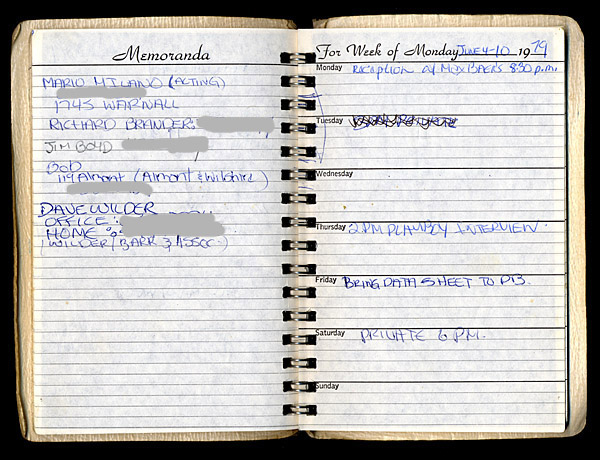 Memoranda
MARIO MILANO (ACTING)
1745 WARNALL
RICHARD BRANDER:
JIM BOYD
BOB
119 Almont (Almont & Wilshire)
DAVE WILDER
OFFICE:
HOME:
(WILDER/BARR & ASSOC.)
For Week of Monday JUNE 4-10 1979
Monday
RECEPTION at MAX BAER'S 8:30 p.m.
Tuesday
Wednesday
Thursday
2 PM PLAYBOY INTERVIEW.
Friday
BRING DATA SHEET TO
Saturday
PRIVATE 6 P.M.
Sunday